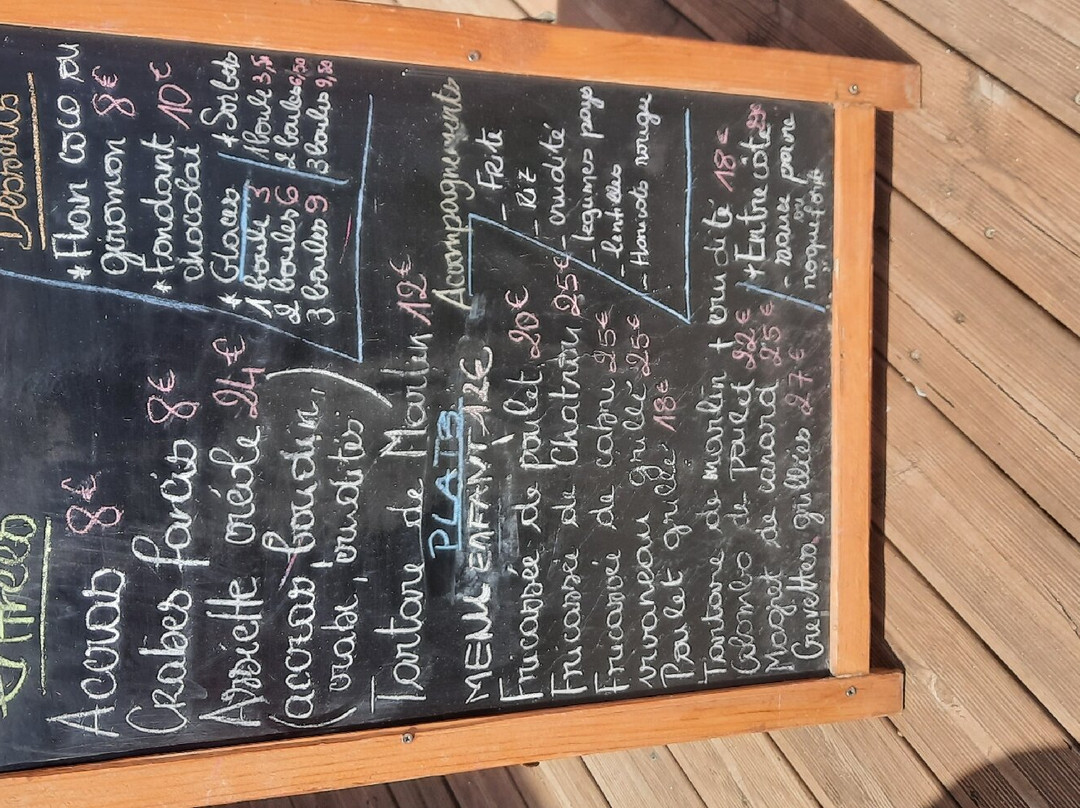 Accras 8€
Crabes farcis 8€
Assiette créole 24€
(accras boudin,
crabe, crudités)
Tartare de Marlin 12€
PLATS
MENU ENFANT 12€
Fricassée de poulet 20€
Fricassée de Chatrou 25€
Fricassé de cabri 25€
vivaneau grillé 25€
Poulet grillé 18€
Tartare de marlin + crudité 18€
Colombo de poulet 22€
Magret de canard 25€
Crevettes grillées 27€
Desserts
* Flan coco ou
giromon 8€
* Fondant 10€
chocolat
* Glaces
1 boule 3
2 boules 6
3 boules 9
* Sorbets
1 boule 3,50
2 boules 6,50
3 boules 9,50
Accompagnements
- Frite
- Riz
- crudité
- legumes pays
- lentilles
- Haricots rouge
* Entrecôte
- sauce poivre
ou
roquefort